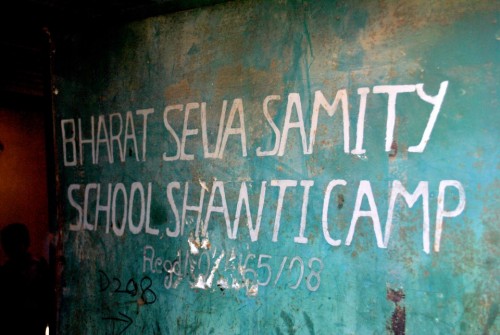 BHARAT SEVA SAMITY
SCHOOL SHANTI CAMP
Regd
D208